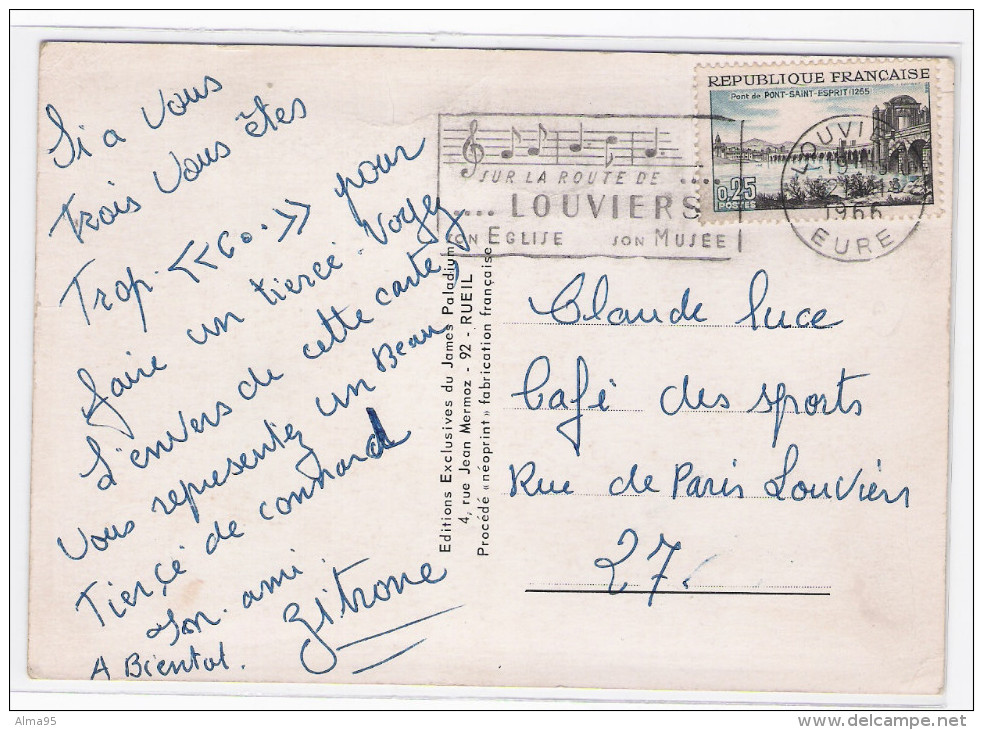 Si a Vous
Trois Vous êtes
Trop. <<Co..>> pour
faire un tiercé. Voyez
L'envers de cette carte,
Vous representez un Beau
Tierçé de connard
Son ami
Zitrone
A Bientot.
SUR LA ROUTE DE ....
.... LOUVIERS
SON EGLISE SON MUSÉE
REPUBLIQUE FRANÇAISE
Pont de PONT-SAINT-ESPRIT (1265)
0,25
POSTES
LOUVIERS
1966
EURE
Editions Exclusives du James Paladium
4, rue Jean Mermoz - 92 - RUEIL
Procédé «néoprint» fabrication française
Claude Luce
Café des sports
Rue de Paris Louviers
27.
Alma95
www.delcampe.net